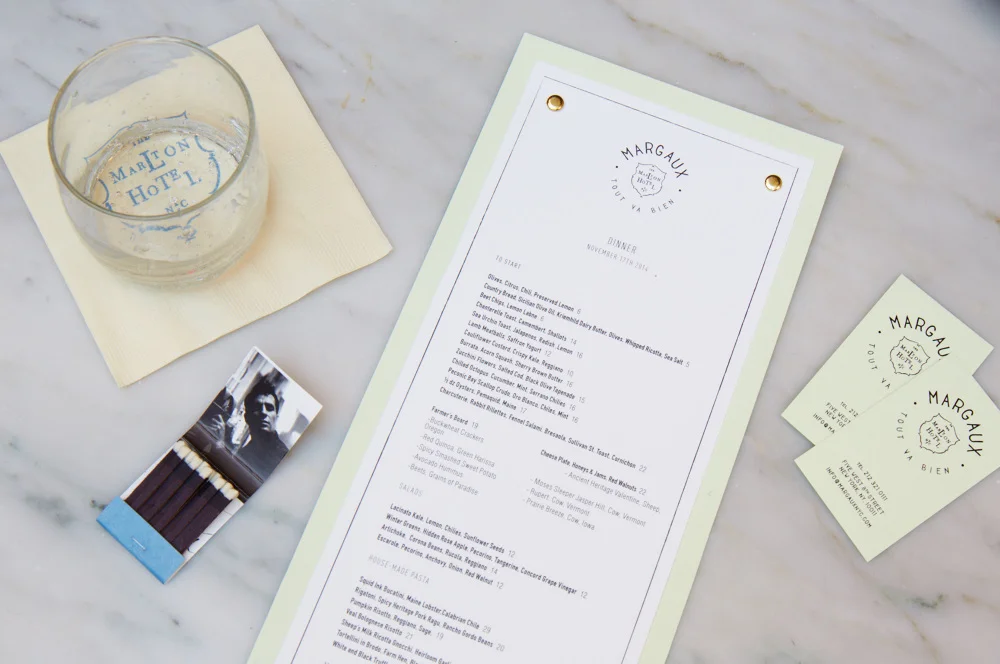 THE
MARLTON
HOTEL
NYC
MARGAUX
THE
MARLTON
HOTEL
TOUT VA BIEN
DINNER
NOVEMBER 17TH 2014
TO START
Olives, Citrus, Chili, Preserved Lemon 8
Country Bread, Sicilian Olive Oil, Kriemhild Dairy Butter, Olives, Whipped Ricotta, Sea Salt 5
Beet Chips, Lemon Labne 6
Chanterelle Toast, Camembert, Shallots 14
Sea Urchin Toast, Jalapenos, Radish, Lemon 16
Lamb Meatballs, Saffron Yogurt 12
Cauliflower Custard, Crispy Kale, Reggiano 10
Burrata, Acorn Squash, Sherry Brown Butter 16
Zucchini Flowers, Salted Cod, Black Olive Tapenade 15
Chilled Octopus, Cucumber, Mint, Serrano Chilies 16
Peconic Bay Scallop Crudo, Oro Blanco, Chilies, Mint 16
½ dz Oysters, Pemaquid, Maine 17
Charcuterie, Rabbit Rillettes, Fennel Salami, Bresaola, Sullivan St. Toast, Cornichon 22
Farmer's Board 19
Buckwheat Crackers
Oregon
- Red Quinoa, Green Harissa
- Spicy Smashed Sweet Potato
- Avocado Hommus
- Beets, Grains of Paradise
Cheese Plate, Honeys & Jams, Red Walnuts 22
- Ancient Heritage Valentine, Sheep,
- Moses Sleeper Jasper Hill, Cow, Vermont
- Rupert, Cow, Vermont
- Prairie Breeze, Cow, Iowa
SALADS
Lacinato Kale, Lemon, Chilies, Sunflower Seeds 12
Winter Greens, Hidden Rose Apple, Pecorino, Tangerine, Concord Grape Vinegar 12
Artichoke, Corona Beans, Rucula, Reggiano 14
Escarole, Pecorino, Anchovy, Onion, Red Walnut 12
HOUSE-MADE PASTA
Squid Ink Bucatini, Maine Lobster, Calabrian Chile 29
Rigatoni, Spicy Heritage Pork Ragu, Rancho Gordo Beans 20
Pumpkin Risotto, Reggiano, Sage 19
Veal Bolognese Risotto 21
Sheep's Milk Ricotta Gnocchi, Heirloom
Tortellini in Brodo, Farm Hen,
White and Black
MARGAU
THE
MARLTON
HOTEL
TOUT VA
TEL 212
FIVE WEST
NEW YOR
INFO@MA
MARGAUX
THE
MARLTON
HOTEL
TOUT VA BIEN
TEL 212 321 0111
FIVE WEST 8TH STREET
NEW YORK, NY. 10011
INFO@MARGAUXNYC.COM